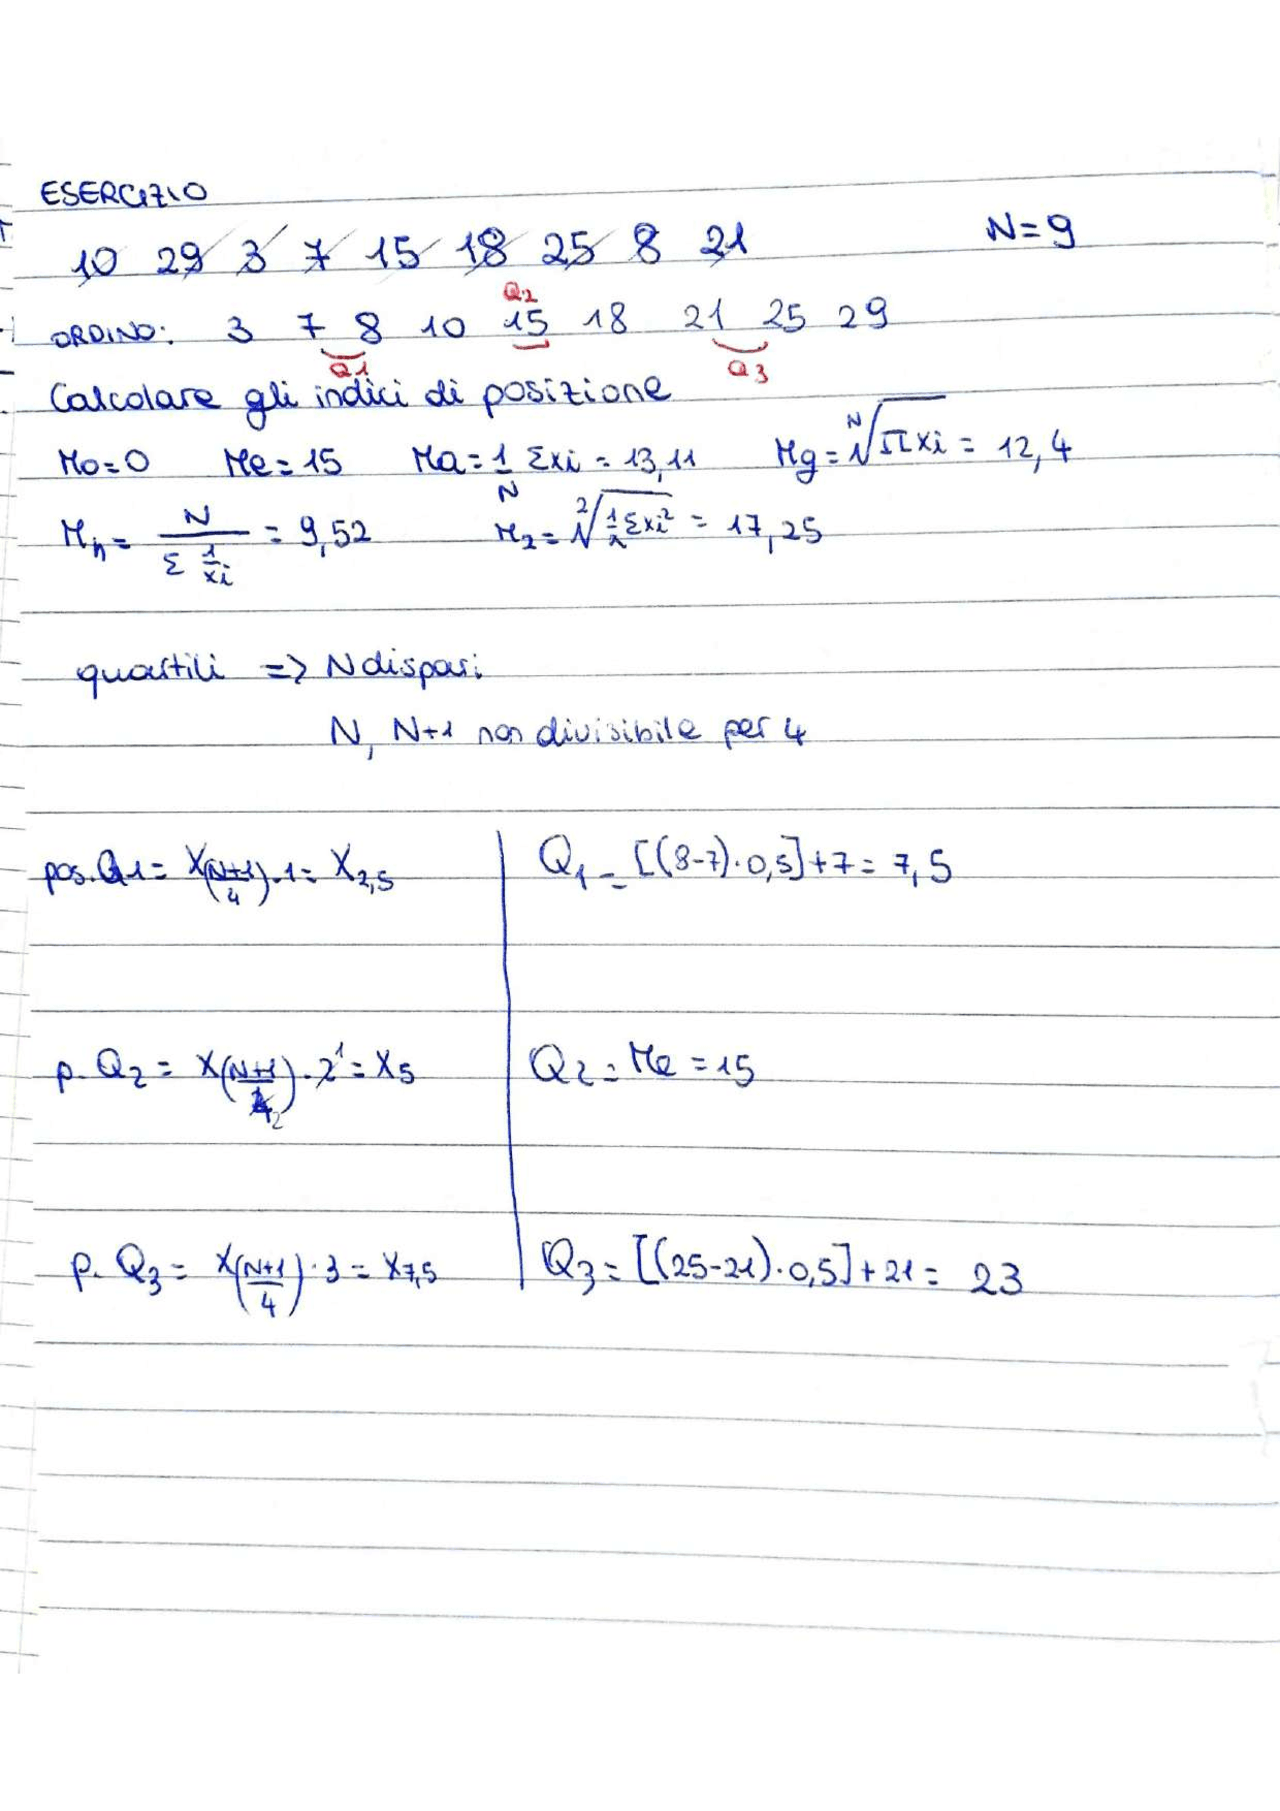 ESERCIZIO
10 29 3 7 15 18 25 8 21 N=9
Q2
ORDINO: 3 7 8 10 15 18 21 25 29
Q1 Q3
Calcolare gli indici di posizione
Mo=0 Me=15 Ma=1/N Σxi = 13,11 Mg=ᴺ√Πxi = 12,4
Mh= N/(Σ 1/xi) = 9,52 M2= ²√(1/n Σxi²) = 17,25
quartili => N dispari
N, N+1 non divisibile per 4
pos. Q1= X(N+1/4)·1= X2,5 Q1= [(8-7)·0,5]+7= 7,5
p. Q2 = X(N+1/2)·1= X5 Q2= Me =15
p. Q3 = X(N+1/4)·3= X7,5 Q3= [(25-21)·0,5]+21= 23